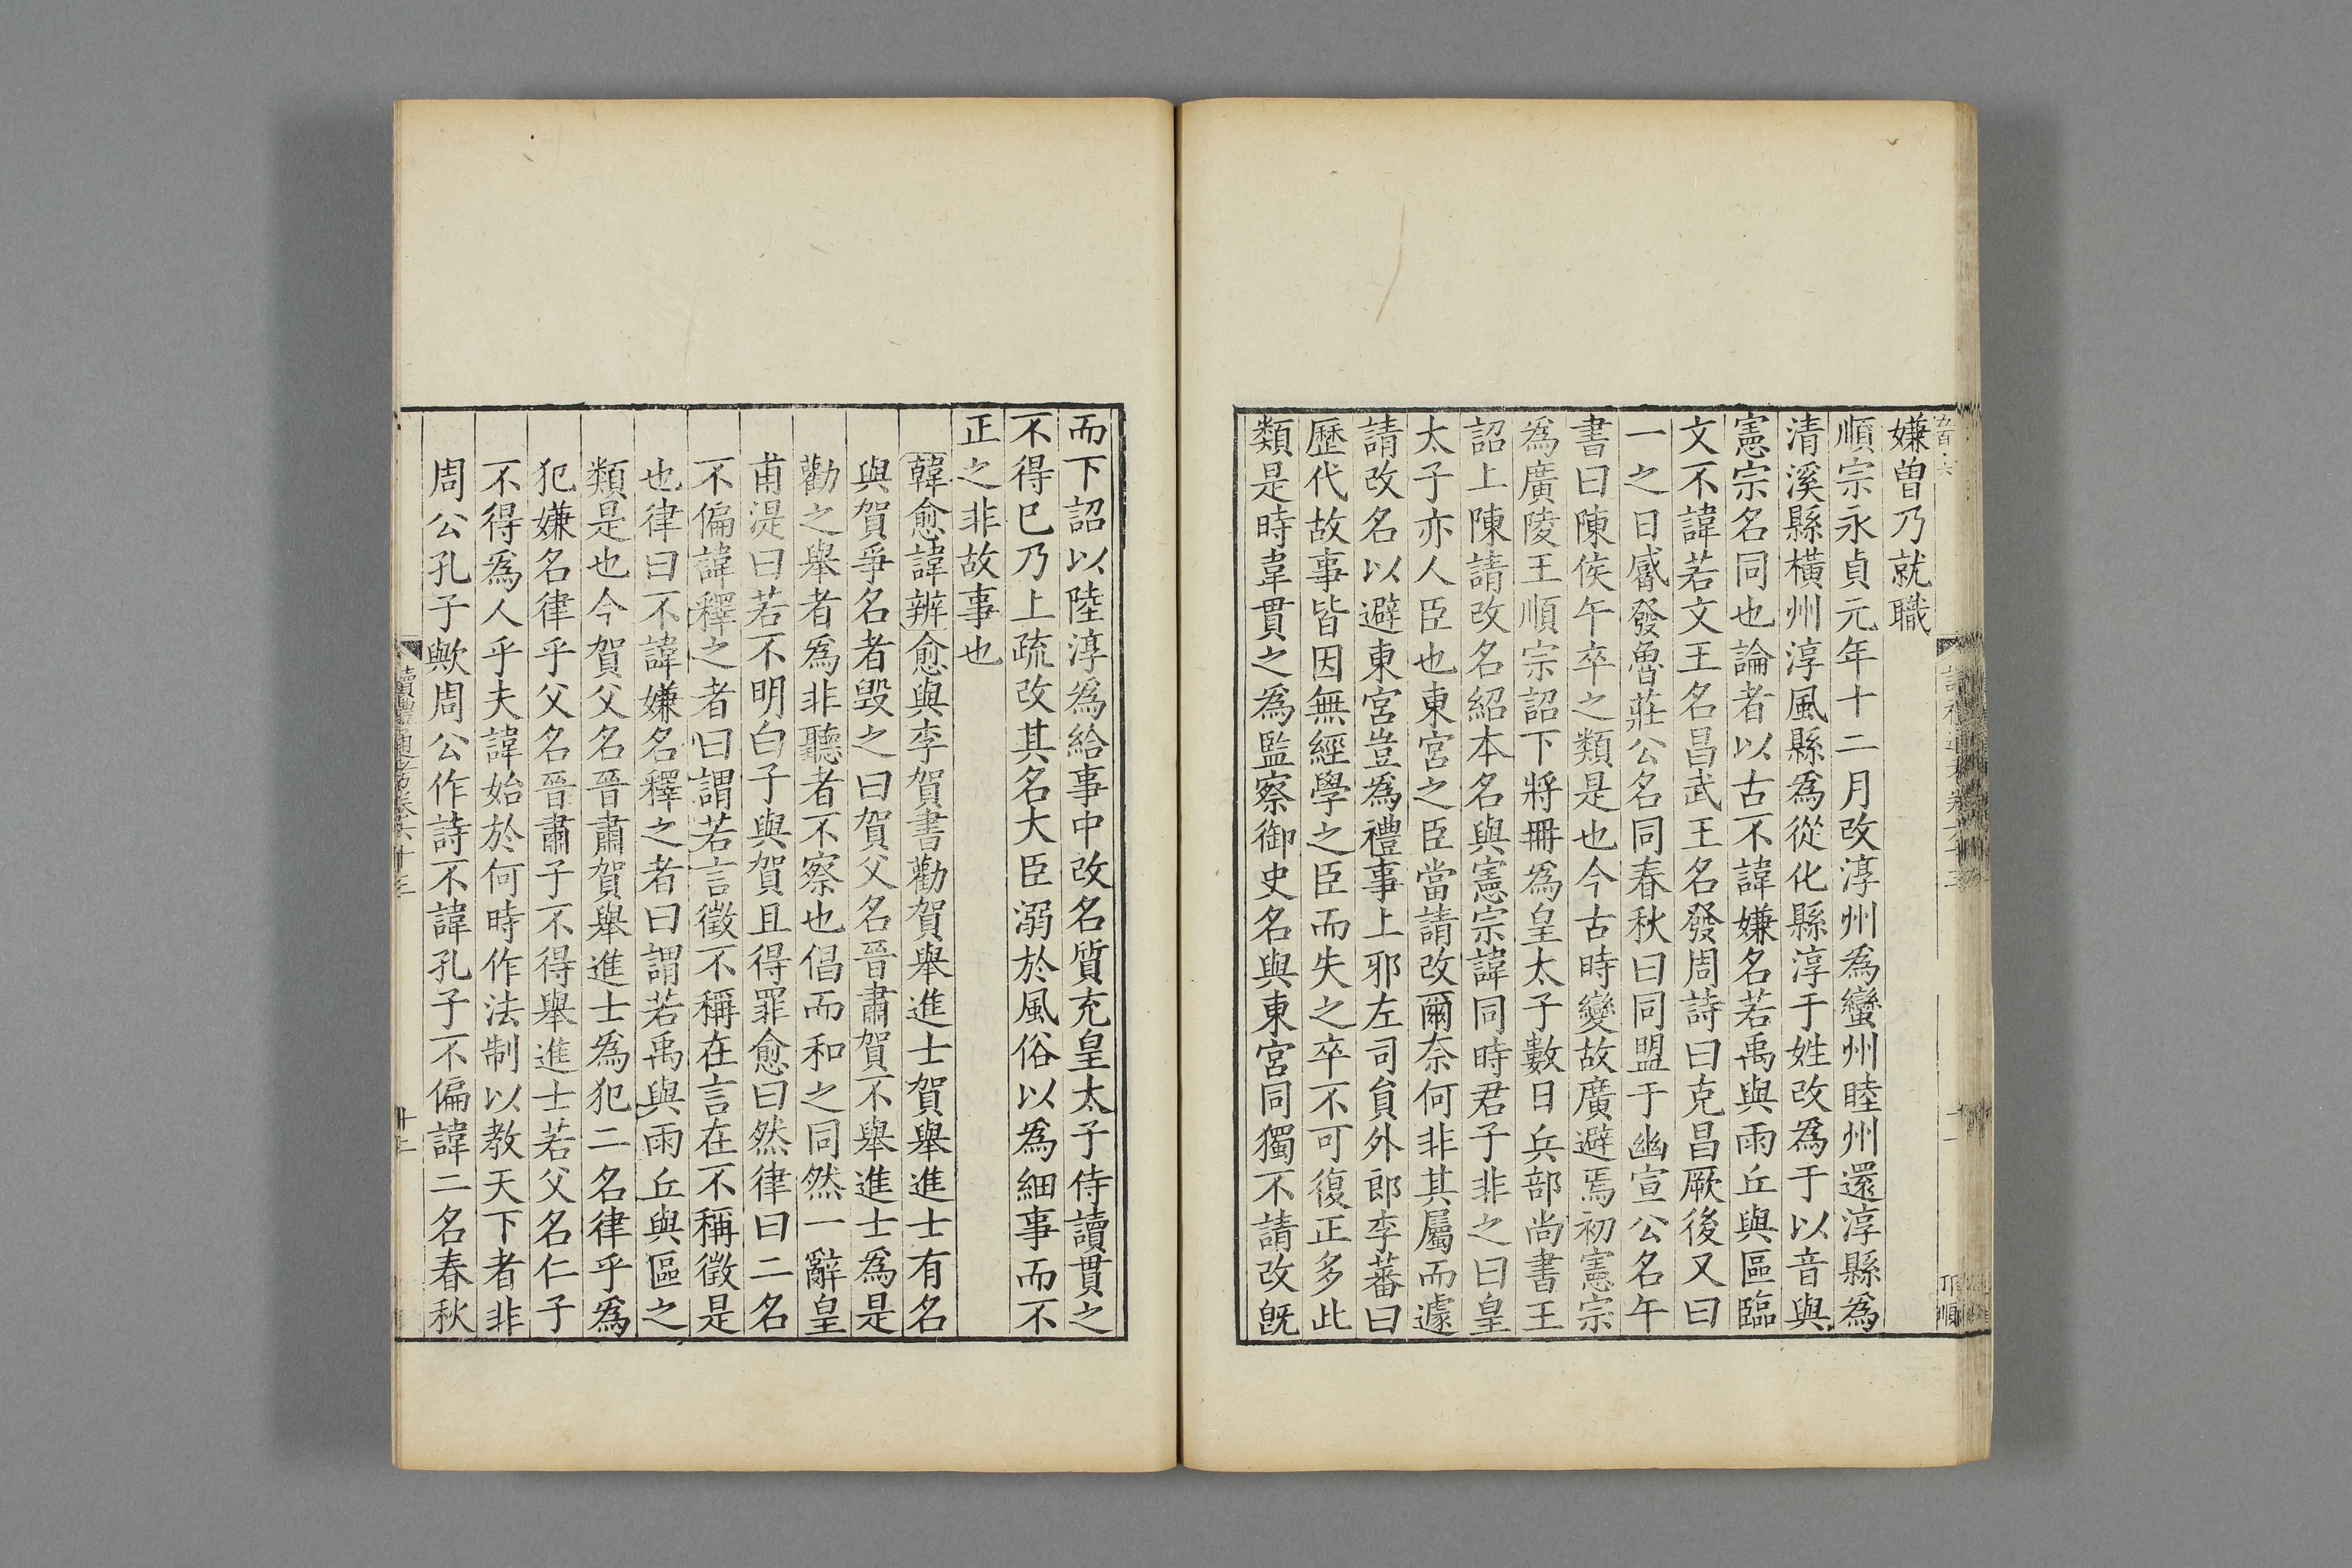 嫌曽乃就職
順宗永貞元年十二月改淳州為蠻州睦州還淳縣為
清溪縣橫州淳風縣為從化縣淳于姓改為于以音與
憲宗名同也論者以古不諱嫌名若禹與雨丘與區臨
文不諱若文王名昌武王名發周詩曰克昌厥後又曰
一之日觱發魯莊公名同春秋曰同盟于幽宣公名午
書曰陳侯午卒之類是也今古時變故廣避焉初憲宗
為廣陵王順宗詔下將冊為皇太子數日兵部尚書王
詔上陳請改名紹本名與憲宗諱同時君子非之曰皇
太子亦人臣也東宮之臣當請改爾奈何非其屬而遽
請改名以避東宮豈為禮事上邪左司員外郎李蕃曰
歷代故事皆因無經學之臣而失之卒不可復正多此
類是時韋貫之為監察御史名與東宮同獨不請改旣
而下詔以陸淳為給事中改名質充皇太子侍讀貫之
不得已乃上疏改其名大臣溺於風俗以為細事而不
正之非故事也
韓愈諱辨愈與李賀書勸賀舉進士賀舉進士有名
與賀爭名者毀之曰賀父名晉肅賀不舉進士為是
勸之舉者為非聽者不察也倡而和之同然一辭皇
甫湜曰若不明白子與賀且得罪愈曰然律曰二名
不偏諱釋之者曰謂若言徵不稱在言在不稱徵是
也律曰不諱嫌名釋之者曰謂若禹與雨丘與區之
類是也今賀父名晉肅賀舉進士為犯二名律乎為
犯嫌名律乎父名晉肅子不得舉進士若父名仁子
不得為人乎夫諱始於何時作法制以教天下者非
周公孔子歟周公作詩不諱孔子不偏諱二名春秋
讀禮通考卷六十三